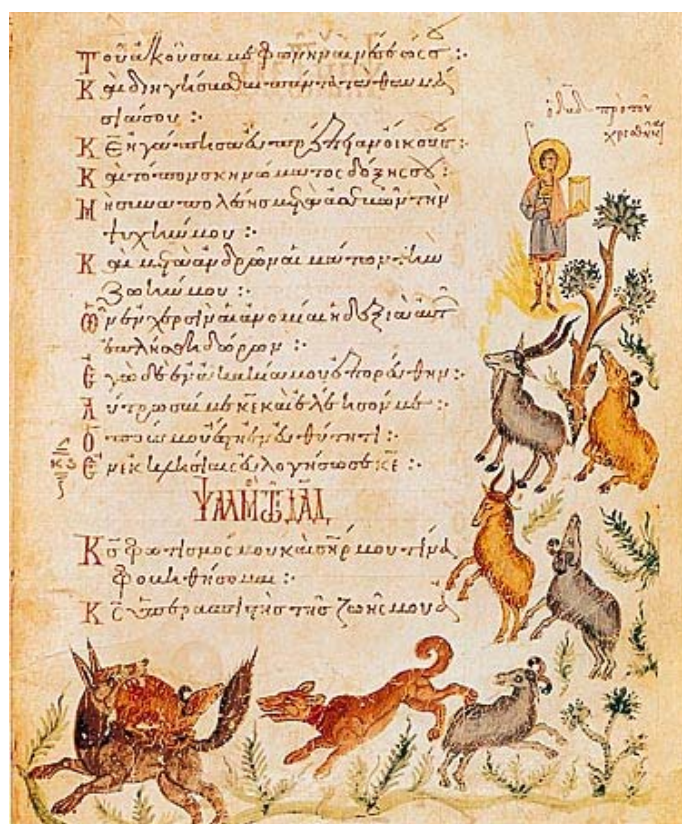 Τοῦ ἀκοῦσαι με φωνῆς αἰνέσεώς σου :·
Καὶ διηγήσασθαι πάντα τὰ θαυμά
σιά σου :·
Κε ἠγάπησα εὐπρέπειαν οἴκου σου :·
Καὶ τόπον σκηνώματος δόξης σου :·
Μὴ συναπολέσης μετὰ ἀσεβῶν τὴν
ψυχήν μου :·
Καὶ μετὰ ἀνδρῶν αἱμάτων τὴν
ζωήν μου :·
Ὧν ἐν χερσὶν αἱ ἀνομίαι ἡ δεξιὰ αὐτ
ἐπλήσθη δώρων :·
Ἐγὼ δὲ ἐν ἀκακία μου ἐπορεύθην :·
Λύτρωσαί με κε καὶ ἐλέησόν με :·
Ὁ ποῦς μου ἔστη ἐν εὐθύτητι :·
Ἐν ἐκκλησίαις εὐλογήσω σε κε :·
ΨΑΛΜ ΤΩ ΔΑΔ
Κς φωτισμός μου καὶ σηρ μου τίνα
φοβηθήσομαι :·
Κς ὑπερασπιστὴς τῆς ζωῆς μου ἀ
ὁ δαδ πρὸ τοῦ
χρισθῆναι
κϛ